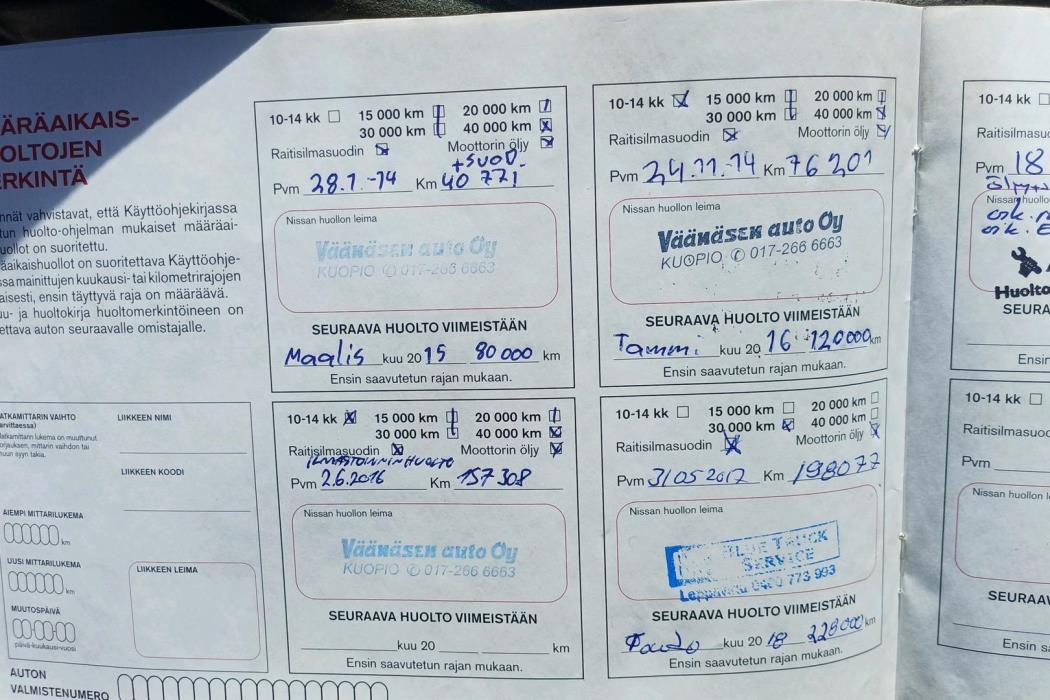 ÄRÄAIKAIS-
OLTOJEN
ERKINTÄ
nnät vahvistavat, että Käyttöohjekirjassa
tun huolto-ohjelman mukaiset määräai-
uollot on suoritettu.
äaikaishuollot on suoritettava Käyttöohje-
ssa mainittujen kuukausi- tai kilometrirajojen
aisesti, ensin täyttyvä raja on määräävä.
uu- ja huoltokirja huoltomerkintöineen on
ettava auton seuraavalle omistajalle.
10-14 kk 15 000 km 20 000 km
30 000 km 40 000 km
Raitisilmasuodin Moottorin öljy
+SUOD.
Pvm 28.1.-14 Km 40 771
Nissan huollon leima
Väänäsen auto Oy
KUOPIO ✆ 017-266 6663
SEURAAVA HUOLTO VIIMEISTÄÄN
Maalis kuu 2015 80 000 km
Ensin saavutetun rajan mukaan.
10-14 kk 15 000 km 20 000 km
30 000 km 40 000 km
Raitisilmasuodin Moottorin öljy
Pvm 24.11.-14 Km 76 201
Nissan huollon leima
Väänäsen auto Oy
KUOPIO ✆ 017-266 6663
SEURAAVA HUOLTO VIIMEISTÄÄN
Tammi kuu 20 16 120000 km
Ensin saavutetun rajan mukaan.
10-14 kk
Raitisilmasuo
Pvm 18
Nissan huollo
Huolto
SEURA
Ensin
ATKAMITTARIN VAIHTO
arvittaessa)
Matkamittarin lukema on muuttunut
orjauksen, mittarin vaihdon tai
muun syyn takia.
LIIKKEEN NIMI
LIIKKEEN KOODI
AIEMPI MITTARILUKEMA
km
UUSI MITTARILUKEMA
km
MUUTOSPÄIVÄ
päivä-kuukausi-vuosi
LIIKKEEN LEIMA
AUTON
VALMISTENUMERO
10-14 kk 15 000 km 20 000 km
30 000 km 40 000 km
Raitisilmasuodin Moottorin öljy
ILMASTOINNIN HUOLTO
Pvm 2.6.2016 Km 157308
Nissan huollon leima
Väänäsen auto Oy
KUOPIO ✆ 017-266 6663
SEURAAVA HUOLTO VIIMEISTÄÄN
kuu 20 km
Ensin saavutetun rajan mukaan.
10-14 kk 15 000 km 20 000 km
30 000 km 40 000 km
Raitisilmasuodin Moottorin öljy
Pvm 31052017 Km 198077
Nissan huollon leima
BLUE TRUCK
SERVICE
Leppävirta 0400 773 993
SEURAAVA HUOLTO VIIMEISTÄÄN
kuu 20 18 228000 km
Ensin saavutetun rajan mukaan.
10-14 kk
Raitisilmasuod
Pvm
Nissan huollon l
SEURAAV
Ensin sa